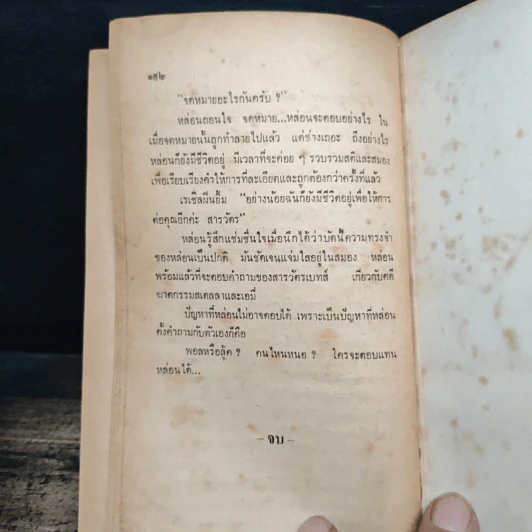 ๑๕๒
"จดหมายอะไรกันครับ ?"
หล่อนถอนใจ จดหมาย...หล่อนจะตอบอย่างไร ใน
เมื่อจดหมายนั้นถูกทำลายไปแล้ว แต่ช่างเถอะ ถึงอย่างไร
หล่อนก็ยังมีชีวิตอยู่ มีเวลาที่จะค่อย ๆ รวบรวมสติและสมอง
เพื่อเรียบเรียงคำให้การที่ละเอียดและถูกต้องกว่าครั้งที่แล้ว
เรเชิลฝืนยิ้ม "อย่างน้อยฉันก็ยังมีชีวิตอยู่เพื่อให้การ
ต่อคุณอีกค่ะ สารวัตร"
หล่อนรู้สึกแช่มชื่นใจเมื่อนึกได้ว่าบัดนี้ความทรงจำ
ของหล่อนเป็นปกติ มันชัดเจนแจ่มใสอยู่ในสมอง หล่อน
พร้อมแล้วที่จะตอบคำถามของสารวัตรเบทส์ เกี่ยวกับคดี
ฆาตกรรมสเตลลาและเอมี่
ปัญหาที่หล่อนไม่อาจตอบได้ เพราะเป็นปัญหาที่หล่อน
ตั้งคำถามกับตัวเองก็คือ
พอลหรือลุ้ค ? คนไหนหนอ ? ใครจะตอบแทน
หล่อนได้...
– จบ –